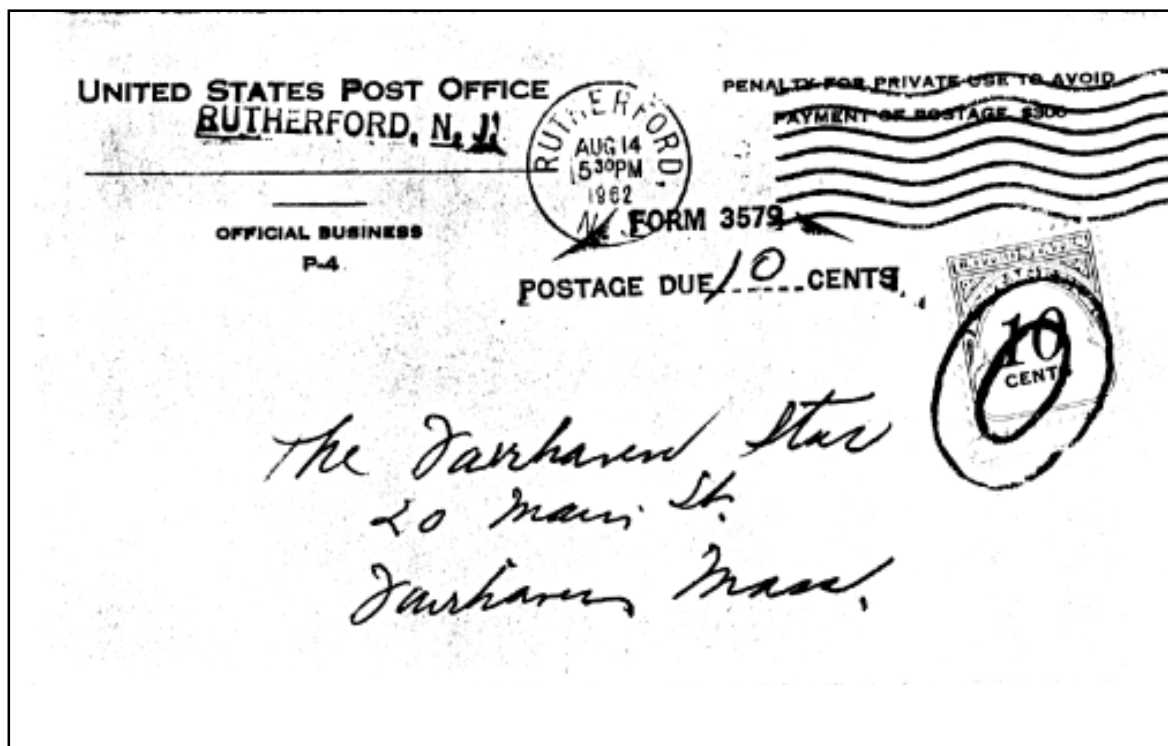 UNITED STATES POST OFFICE
RUTHERFORD, N. J.
OFFICIAL BUSINESS
P-4
RUTHERFORD,
AUG 14
5 30 PM
1962
N. J.
PENALTY FOR PRIVATE USE TO AVOID
PAYMENT OF POSTAGE, $300
FORM 3579
POSTAGE DUE 10 CENTS
10
CENTS
The Fairhaven Star
20 Main St.
Fairhaven, Mass.